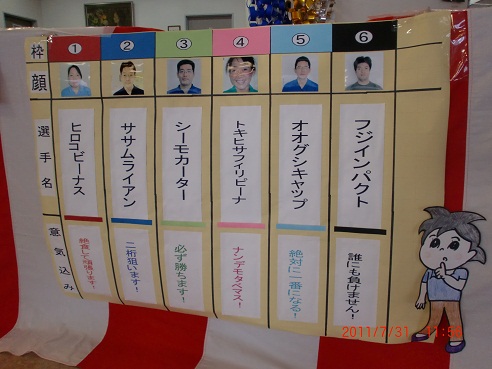 枠 ① ② ③ ④ ⑤ ⑥
顔
選手名
ヒロコビーナス
ササムライアン
シーモカーター
トキヒサフィリピーナ
オオグシキャップ
フジインパクト
意気込み
絶食して頑張ります!
二桁狙います!
必ず勝ちます!
ナンデモタベマス!
絶対に一番になる!
誰にも負けません!
2011/7/31 11:56